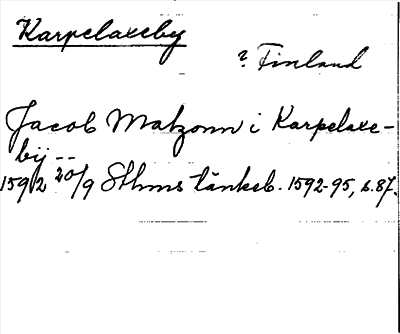 Karpelaxeby
? Finland
Jacob Matzonn i Karpelaxe-
bij --
1592 20/9 Sthms tänkeb. 1592-95, s. 87.